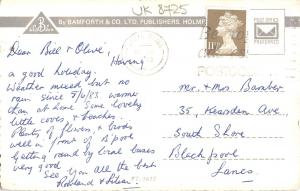 UK 8725
By BAMFORTH & CO. LTD. PUBLISHERS, HOLMF
Dear Bill & Olive, Having
a good holiday.
Weather mixed but no
rain since 5/9/83 warmer
than at home. Some lovely
little coves, & beaches.
Plenty of flowers, & birds
well in front of B'pool
Getting round by local buses
very good. See you all the best
11½P
POSTCODE
Mr. & Mrs. Bamber
35, Hearsden Ave,
South Shore
Blackpool
Lancs